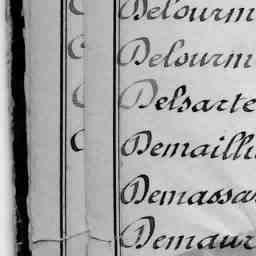 Delourm
Delourm
Delsarte
Demailli
Demassa
Demaur